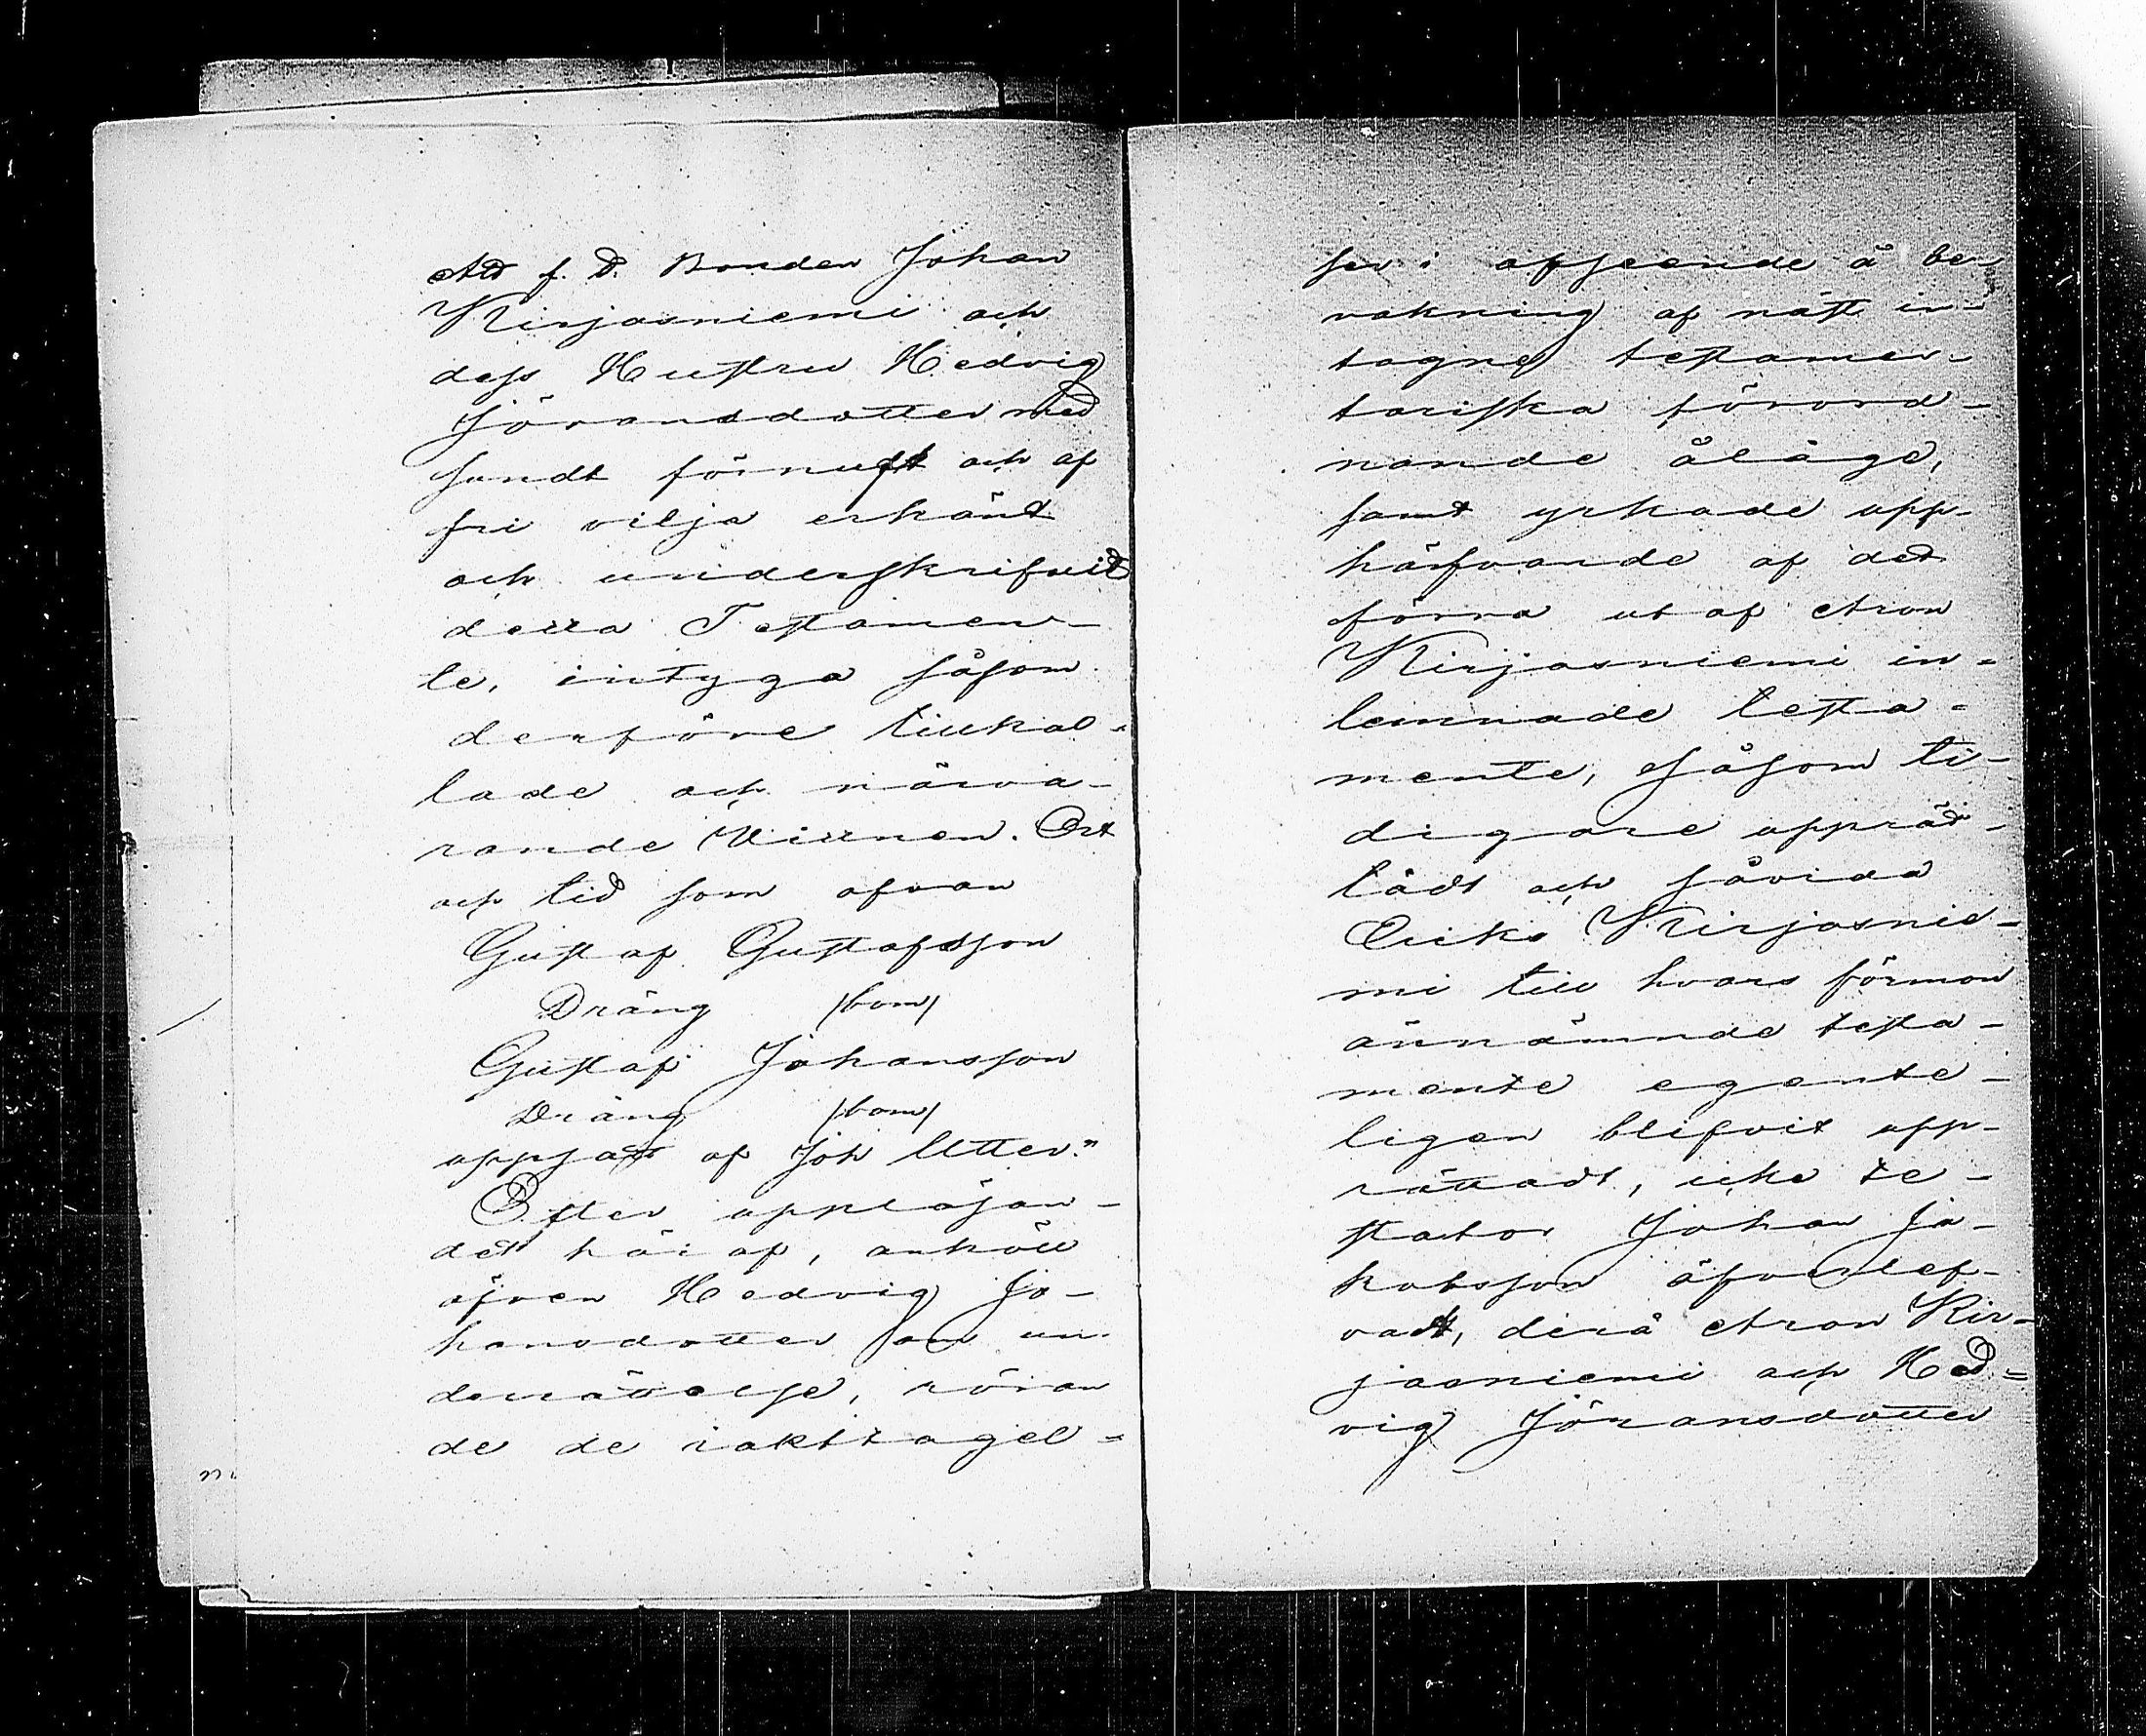 Att f. d. Bonden Johan
Kirjasniemi och
dess Hustru Hedvig
Jöransdotter med
sundt förnuft och af
fri vilja erkänt
och underskrifvit
detta Testamen-
te, intyga såsom
derföre tillkal-
lade och närva-
rande Vittnen. Ort
och tid som ofvan
Gustaf Gustafsson
Dräng /bom/
Gustaf Johansson
Dräng /bom/
uppsatt af Joh Utter."
Efter uppläsan-
det häraf, anhöll
äfven Hedvig Jo-
hansdotter om un-
derrättelse, röran
de de iakttagel-
ser i afseende å be-
vakning af näst in-
tagne testamen-
tariska förord-
nande ålåge,
samt yrkade upp-
häfvande af det
förra utaf Aron
Kirjasniemi in-
lemnade testa-
mente, såsom ti-
digare upprät-
tadt och såvida
Eriks Kirjasnie-
mi till hvars förmon
ännämnde testa-
mente egente-
ligen blifvit upp-
rättadt, icke te-
stator Johan Ja-
kobsson öfverlef-
vat, derå Aron Kir-
jasniemi och Hed-
vig Jöransdotter